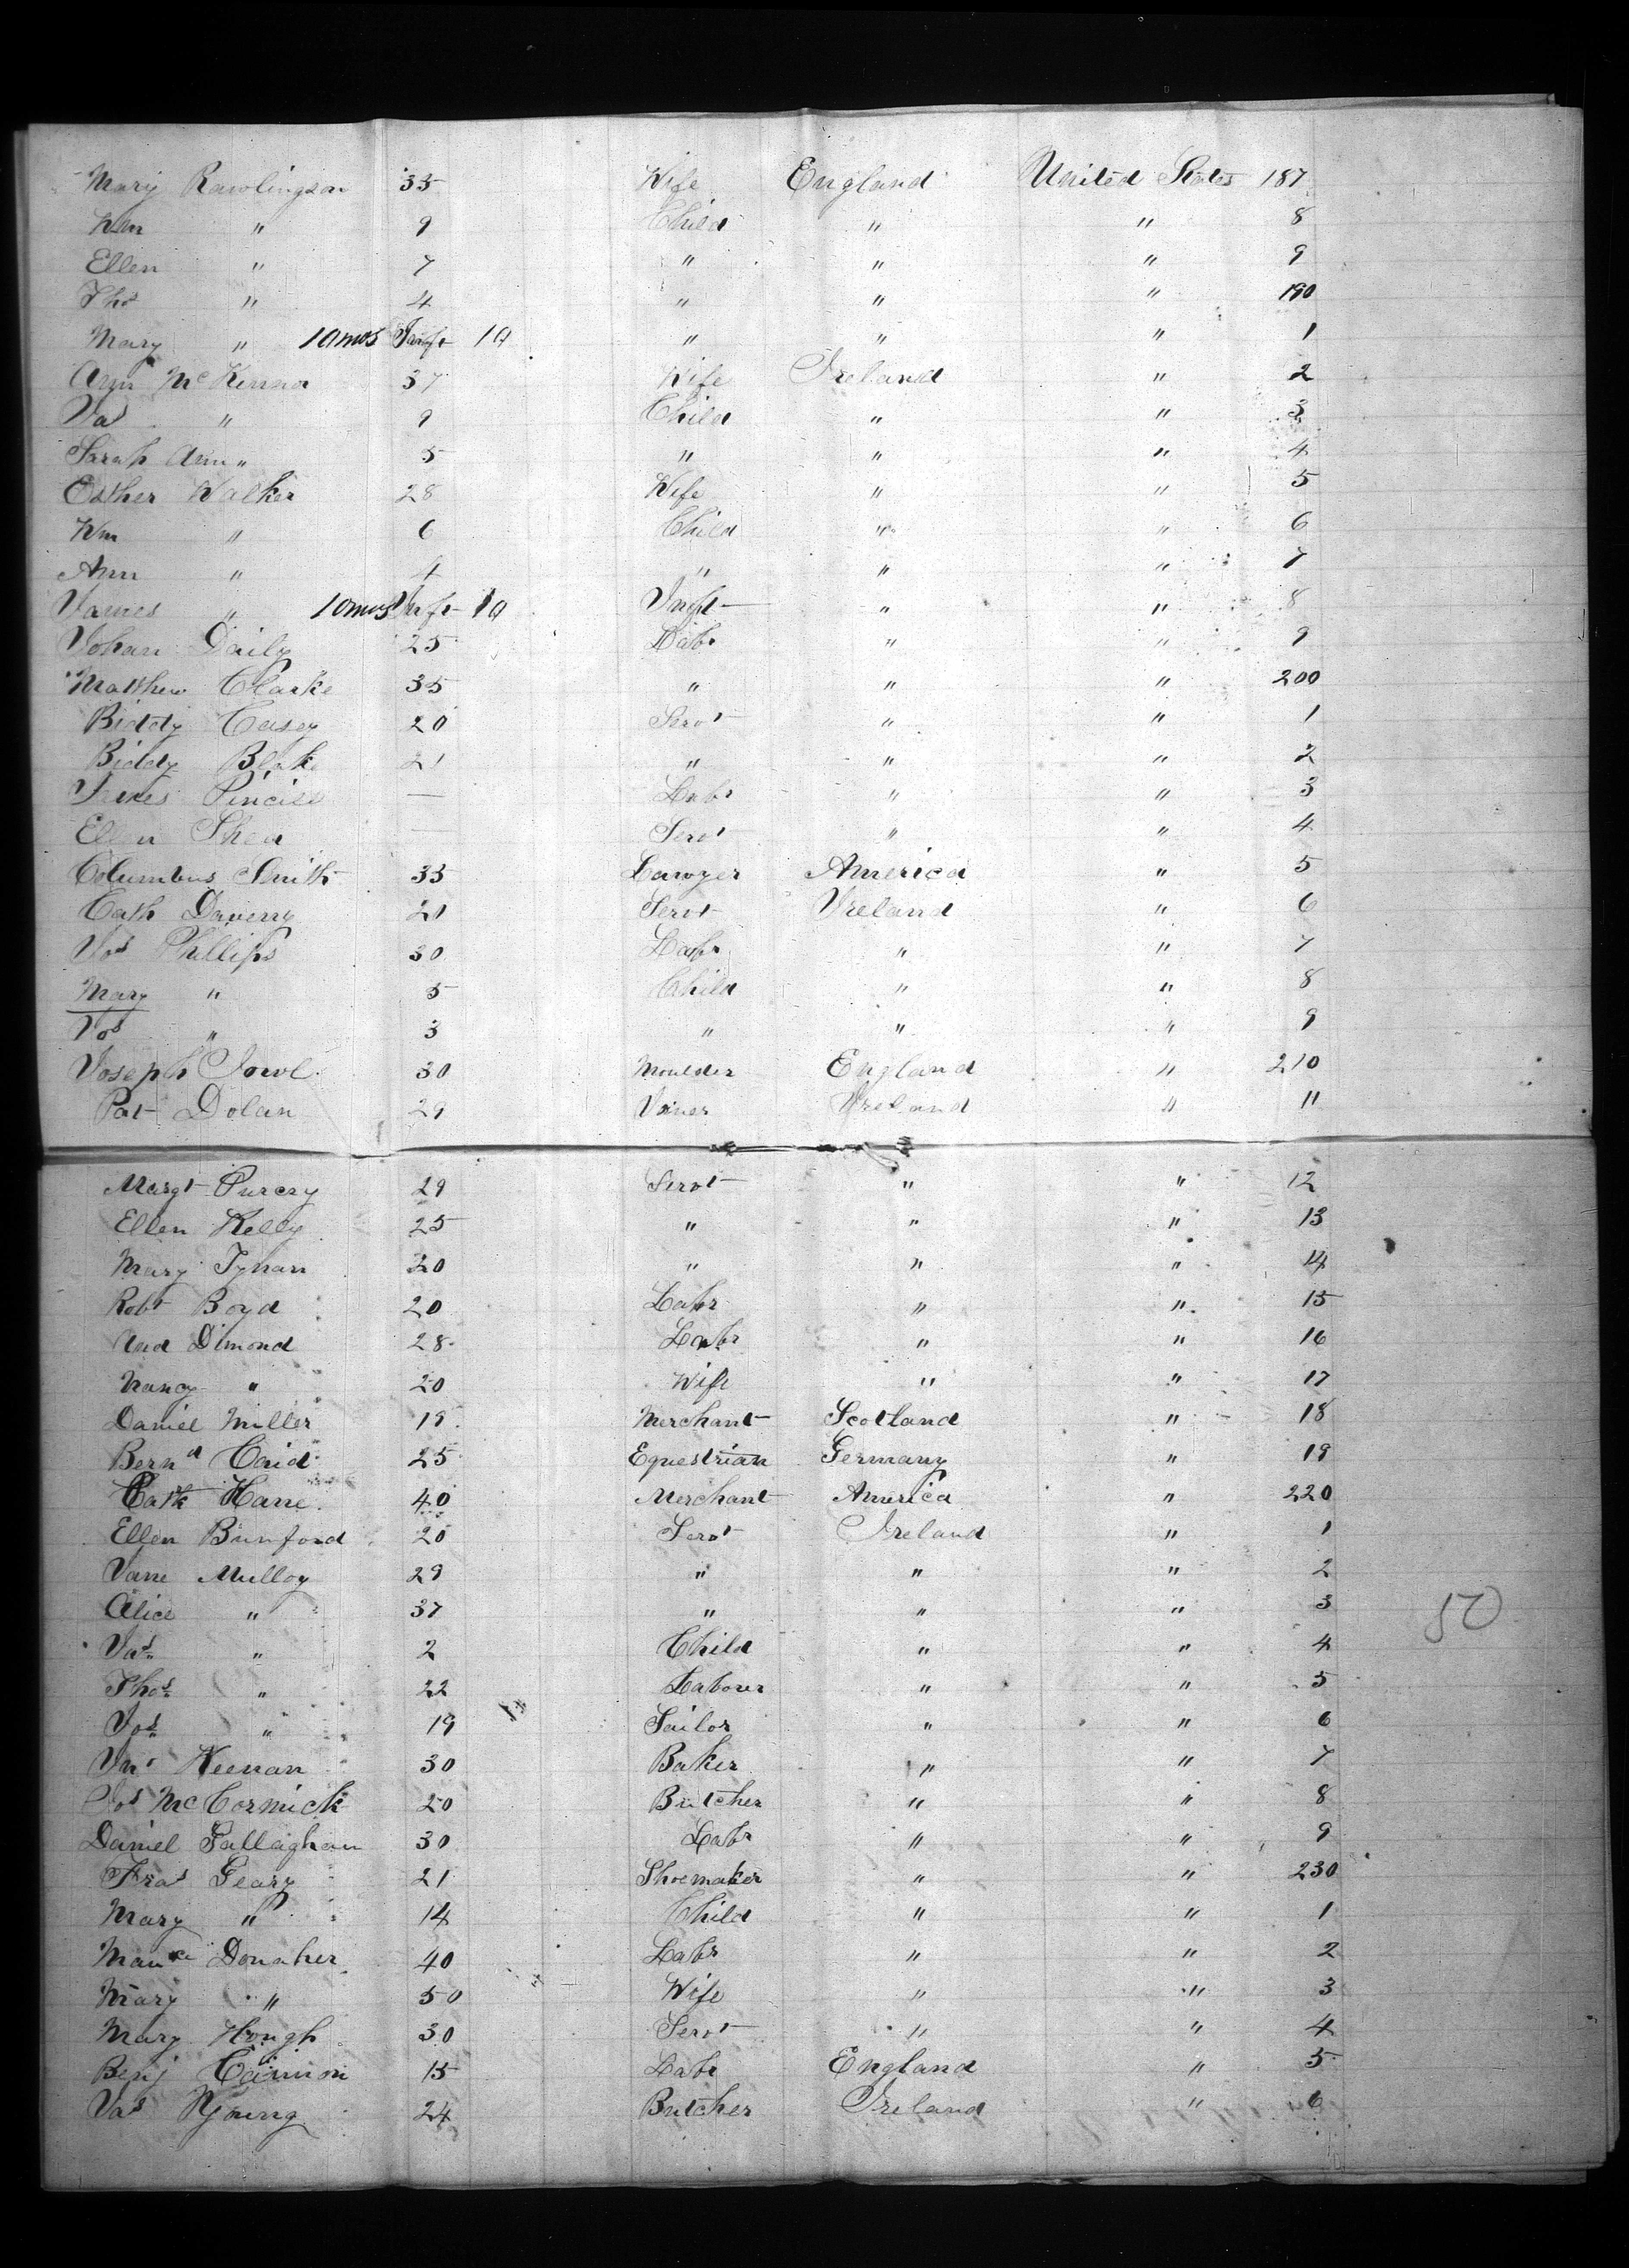 Mary Rawlingson 35 Wife England United States 187
Wm " 9 Child " " 8
Ellen " 7 " " " 9
Thos " 4 " " " 190
Mary " 10 mos Inft 10 " " " 1
Ann McKenna 37 Wife Ireland " 2
Jas " 9 Child " " 3
Sarah Ann " 5 " " " 4
Esther Walker 28 Wife " " 5
Wm " 6 Child " " 6
Ann " 4 " " " 7
James " 10 mos Inft 10 Inft " " 8
Johan Daily 25 Labr " " 9
Matthew Clarke 35 " " " 200
Biddy Casey 20 Servt " " 1
Biddy Blake 21 " " " 2
James — Labr " " 3
Ellen Shea — Servt " " 4
Columbus Smith 33 Lawyer America " 5
Cath Daveny 21 Servt Ireland " 6
Jos Phillips 30 Labr " " 7
Mary " 5 Child " " 8
Jos " 3 " " " 9
Joseph 30 Moulder England " 210
Pat Dolan 29 Ireland " 11
Margt Purcry 29 Servt " " 12
Ellen Kelly 25 " " " 13
Mary Tynan 20 " " " 14
Robt Boyd 20 Labr " " 15
Dimond 28 Labr " " 16
Nancy " 20 Wife " " 17
Daniel Miller 19 Merchant Scotland " 18
Bernd Caid 25 Equestrian Germany " 19
Hane 40 Merchant America " 220
Ellen Bunford 20 Servt Ireland " 1
Jane Mulloy 29 " " " 2
Alice " 37 " " " 3
Jas " 2 Child " " 4
Thos " 22 Labourer " " 5
50
Jos " 19 Tailor " " 6
Jno Keenan 30 Baker " " 7
Jos McCormick 20 Butcher " " 8
Daniel Gallaghan 30 Labr " " 9
Fras Geary 21 Shoemaker " " 230
Mary " 14 Child " " 1
Maurce Donaher 40 Labr " " 2
Mary " 50 Wife " " 3
Mary Hough 30 Servt " " 4
Benj Cannon 15 Labr England " 5
Jas Young 24 Butcher Ireland " 6